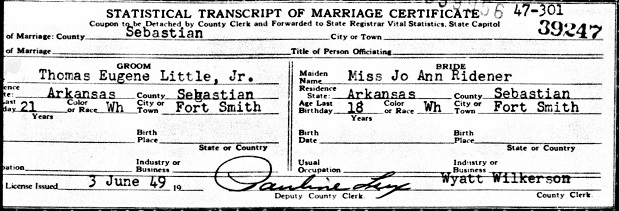 STATISTICAL TRANSCRIPT OF MARRIAGE CERTIFICATE 47-301
Coupon to be Detached by County Clerk and Forwarded to State Registrar Vital Statistics, State Capitol
39247
of Marriage: County Sebastian City or Town
of Marriage Title of Person Officiating
GROOM BRIDE
Thomas Eugene Little, Jr. Maiden Name Miss Jo Ann Ridener
Arkansas County Sebastian Residence State: Arkansas County Sebastian
21 Color or Race Wh City or Town Fort Smith Age Last Birthday 18 Color or Race Wh City or Town Fort Smith
Years Years
Birth Place Birth Date Birth Place
State or Country State or Country
Industry or Business Usual Occupation Industry or Business
License Issued 3 June 49 19 Wyatt Wilkerson
Deputy County Clerk County Clerk